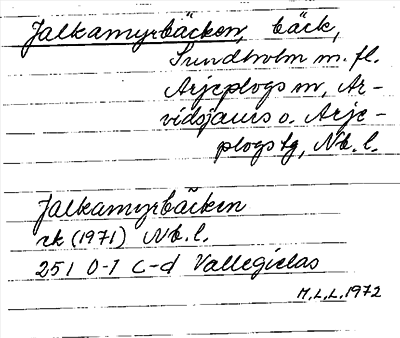 Jalkamyrbäcken, bäck,
Sundholm m. fl.
Arjeplogs sn, Ar-
vidsjaurs o. Arje-
plogs tg, Nb. l.
Jalkamyrbäcken
rk (1971) Nb. l.
251 0-1 c-d Vallegielas
M.L.L. 1972